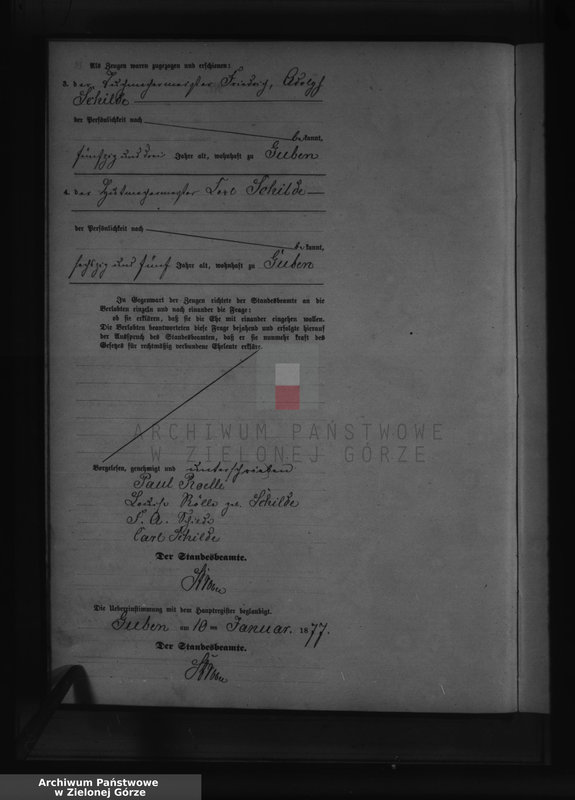 Als Zeugen waren zugezogen und erschienen:
3. der Tuchmachermeister Friedrich, Adolph
Schilde
der Persönlichkeit nach
bekannt,
fünfzig und drei Jahre alt, wohnhaft zu Guben
4. der Hutmachermeister Carl Schilde
der Persönlichkeit nach
bekannt,
sechszig und fünf Jahre alt, wohnhaft zu Guben
In Gegenwart der Zeugen richtete der Standesbeamte an die
Verlobten einzeln und nach einander die Frage:
ob sie erklären, daß sie die Ehe mit einander eingehen wollen.
Die Verlobten beantworteten diese Frage bejahend und erfolgte hierauf
der Ausspruch des Standesbeamten, daß er sie nunmehr kraft des
Gesetzes für rechtmäßig verbundene Eheleute erkläre.
ARCHIWUM PAŃSTWOWE
W ZIELONEJ GÓRZE
Vorgelesen, genehmigt und unterschrieben
Paul Roelle
Louise Rölle geb. Schilde
F. A. Schilde
Carl Schilde
Der Standesbeamte.
Die Uebereinstimmung mit dem Hauptregister beglaubigt.
Guben am 10ten Januar. 1877.
Der Standesbeamte.
Archiwum Państwowe
w Zielonej Górze